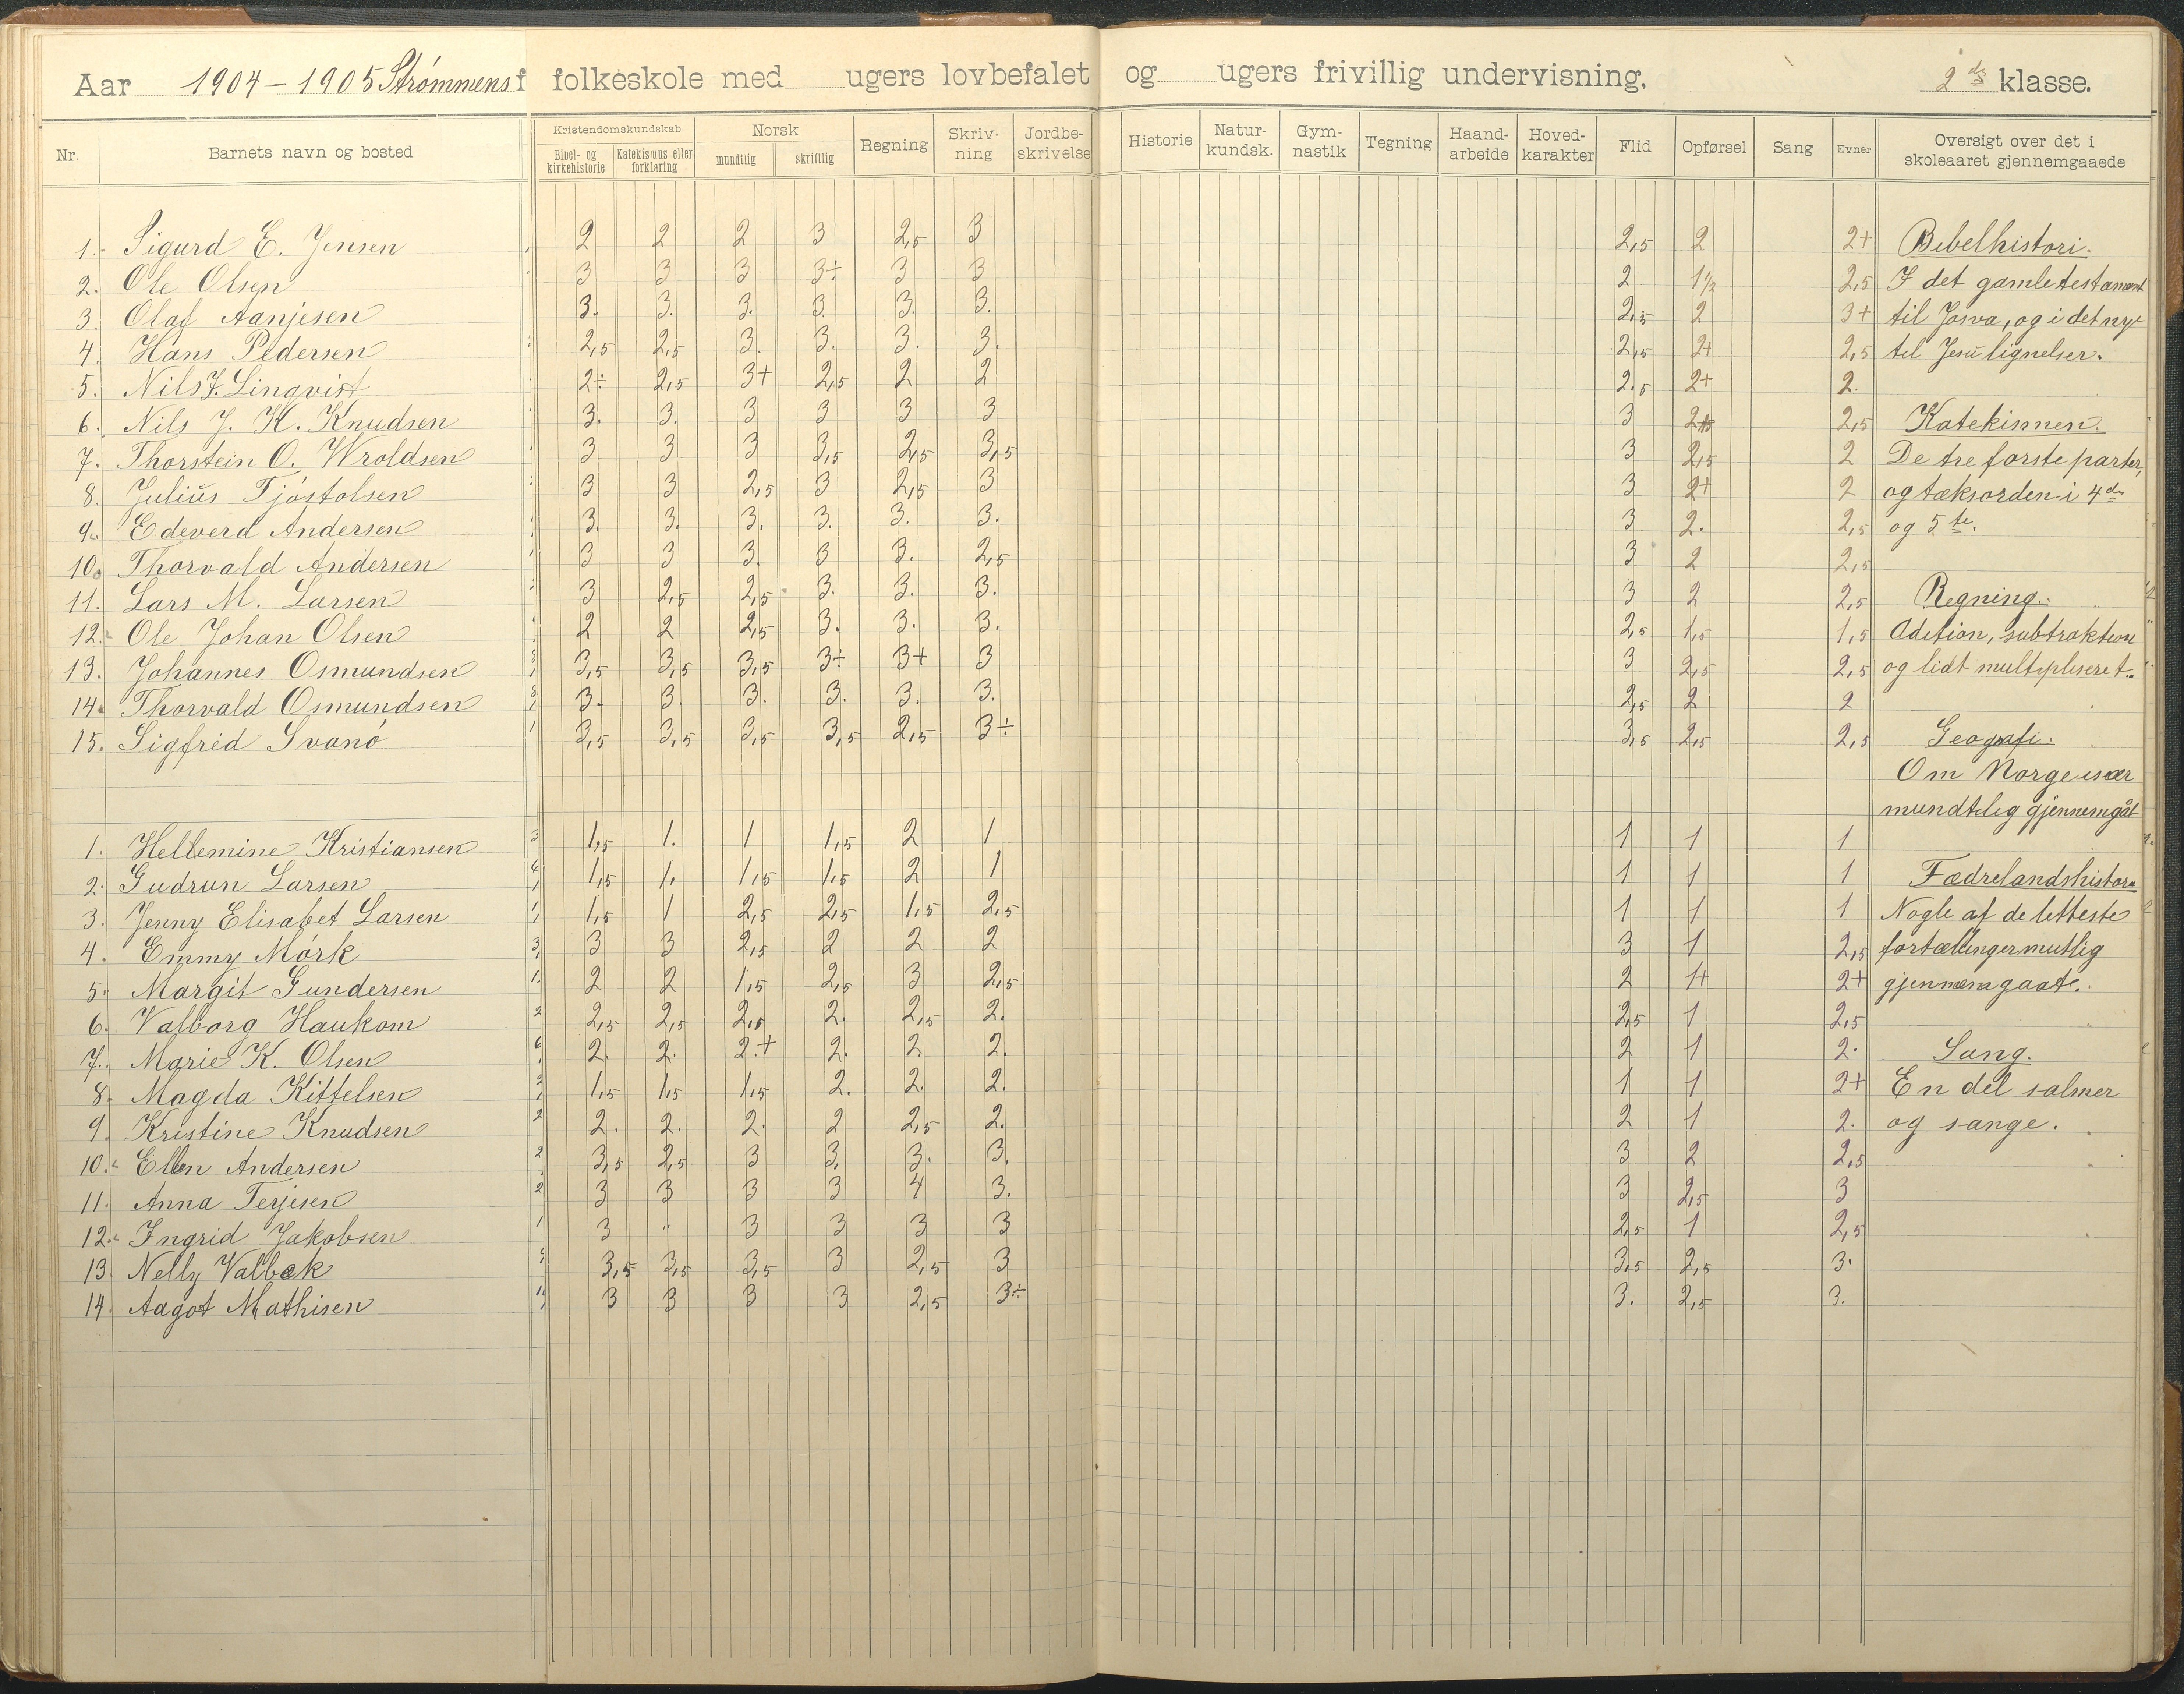 Aar 1904-1905 Strømmens folkeskole med ugers lovbefalet og ugers frivillig undervisning, 2den klasse.
Nr. Barnets navn og bosted Kristendomskundskab Bibel- og kirkehistorie Katekismus eller forklaring Norsk mundtlig skriftlig Regning Skriv-ning Jordbe-skrivelse Historie Natur-kundsk. Gym-nastik Tegning Haand-arbeide Hoved-karakter Flid Opførsel Sang Evner Oversigt over det i skoleaaret gjennemgaaede
1. Sigurd E. Jensen 2 2 2 3 2,5 3 2,5 2 2+ Bibelhistori.
2. Ole Olsen 3 3 3 3÷ 3 3 2 1½ 2,5 I det gamle testament
3. Olaf Aanjesen 3. 3. 3. 3. 3. 3. 2,5 2 3+ til Josva, og i det nye
4. Hans Pedersen 2,5 2,5 3. 3. 3. 3. 2,5 2+ 2,5 til Jesu lignelser.
5. Nils J. Linqvist 2÷ 2,5 3+ 2,5 2 2 2.5 2+ 2.
6. Nils J. K. Knudsen 3. 3. 3 3 3 3 3 2,5 Katekismen.
7. Thorstein O. Wroldsen 3 3 3 3,5 2,5 3,5 3 2,5 2 De tre forste parter,
8. Julius Tjóstolsen 3 3 2,5 3 2,5 3 3 2+ 2 og tæksorden i 4de
9. Edeverd Andersen 3. 3. 3. 3. 3. 3. 3 2. 2,5 og 5te.
10. Thorvald Andersen 3 3 3. 3 3. 2,5 3 2 2,5
11. Lars M. Larsen 3 2,5 2,5 3. 3. 3. 3 2 2,5 Regning.
12. Ole Johan Olsen 2 2 2,5 3. 3. 3. 2,5 1,5 1,5 Adition, subtraktion
13. Johannes Osmundsen 3,5 3,5 3,5 3÷ 3+ 3 3 2,5 2,5 og lidt multipliseret.
14. Thorvald Osmundsen 3. 3. 3. 3. 3. 3. 2,5 2 2
15. Sigfred Svanó 3,5 3,5 3,5 3,5 2,5 3÷ 3,5 2,5 2,5 Geografi.
Om Norge især
mundtlig gjennemgåt
1. Hellemine Kristiansen 1,5 1. 1 1,5 2 1 1 1 1
2. Gudrun Larsen 1,5 1. 1,5 1,5 2 1 1 1 1 Fædrelandshistori
3. Jenny Elisabet Larsen 1,5 1 2,5 2,5 1,5 2,5 1 1 1 Nogle af de letteste
4. Emmy Mórk 3 3 2,5 2 2 2 3 1 2,5 fortællinger mutlig
5. Margit Gundersen 2 2 1,5 2,5 3 2,5 2 1+ 2+ gjennemgaate.
6. Valborg Haukom 2,5 2,5 2,5 2. 2,5 2. 2,5 1 2,5
7. Marie K. Olsen 2. 2. 2.+ 2. 2 2. 2 1 2. Sang.
8. Magda Kittelsen 1,5 1,5 1,5 2. 2. 2. 1 1 2+ En del salmer
9. Kristine Knudsen 2. 2. 2. 2 2,5 2. 2 1 2. og sange.
10. Ellen Andersen 3,5 2,5 3 3, 3. 3. 3 2 2,5
11. Anna Terjesen 3 3 3 3 4 3. 3 2,5 3
12. Ingrid Jakobsen 3 " 3 3 3 3 2,5 1 2,5
13. Nelly Valbek 3,5 3,5 3,5 3 2,5 3 3,5 2,5 3.
14. Aagot Mathisen 3 3 3 3 2,5 3÷ 3. 2,5 3.